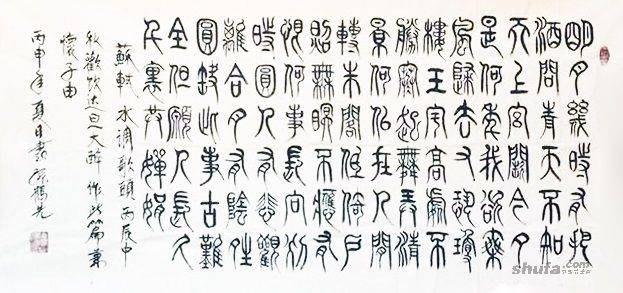 明月幾時有把
酒問青天不知
天上宮闕今夕
是何年我欲乘
風歸去又恐瓊
樓玉宇高處不
勝寒起舞弄清
影何似在人間
轉朱閣低綺戶
照無眠不應有
恨何事長向別
時圓人有悲歡
離合月有陰晴
圓缺此事古難
全但願人長久
千裏共嬋娟
蘇軾 水調歌頭 丙辰中
秋歡飲达旦大醉 作此篇兼
懷子由
丙申年夏日書
shufa.com